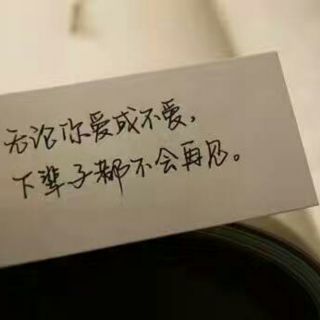 无论你爱或不爱,
下辈子都不会再见。